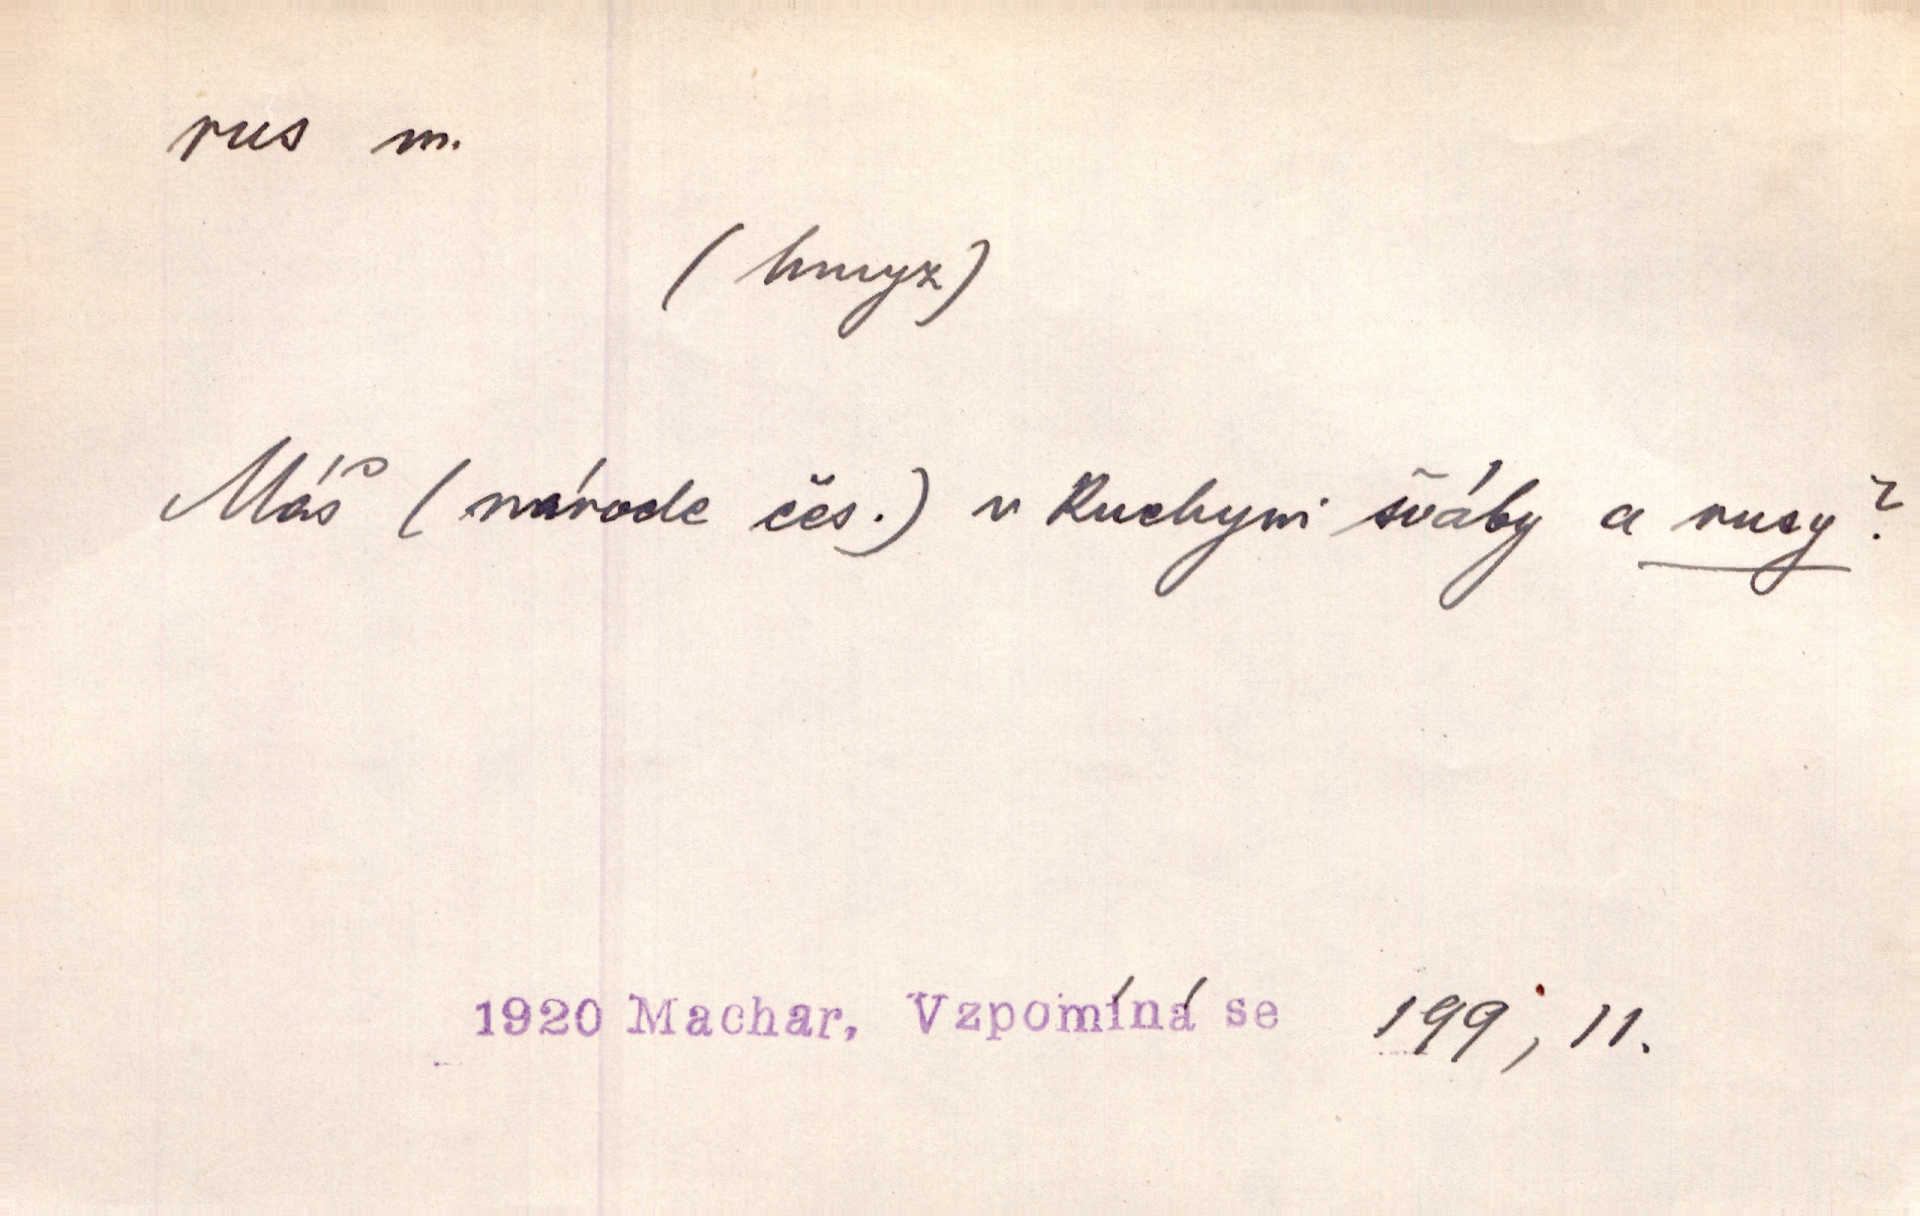 rus m.
(hmyz)
Máš (národe čes.) v Kuchyni šváby a rusy?
1920 Machar, Vzpomíná se 199, 11.